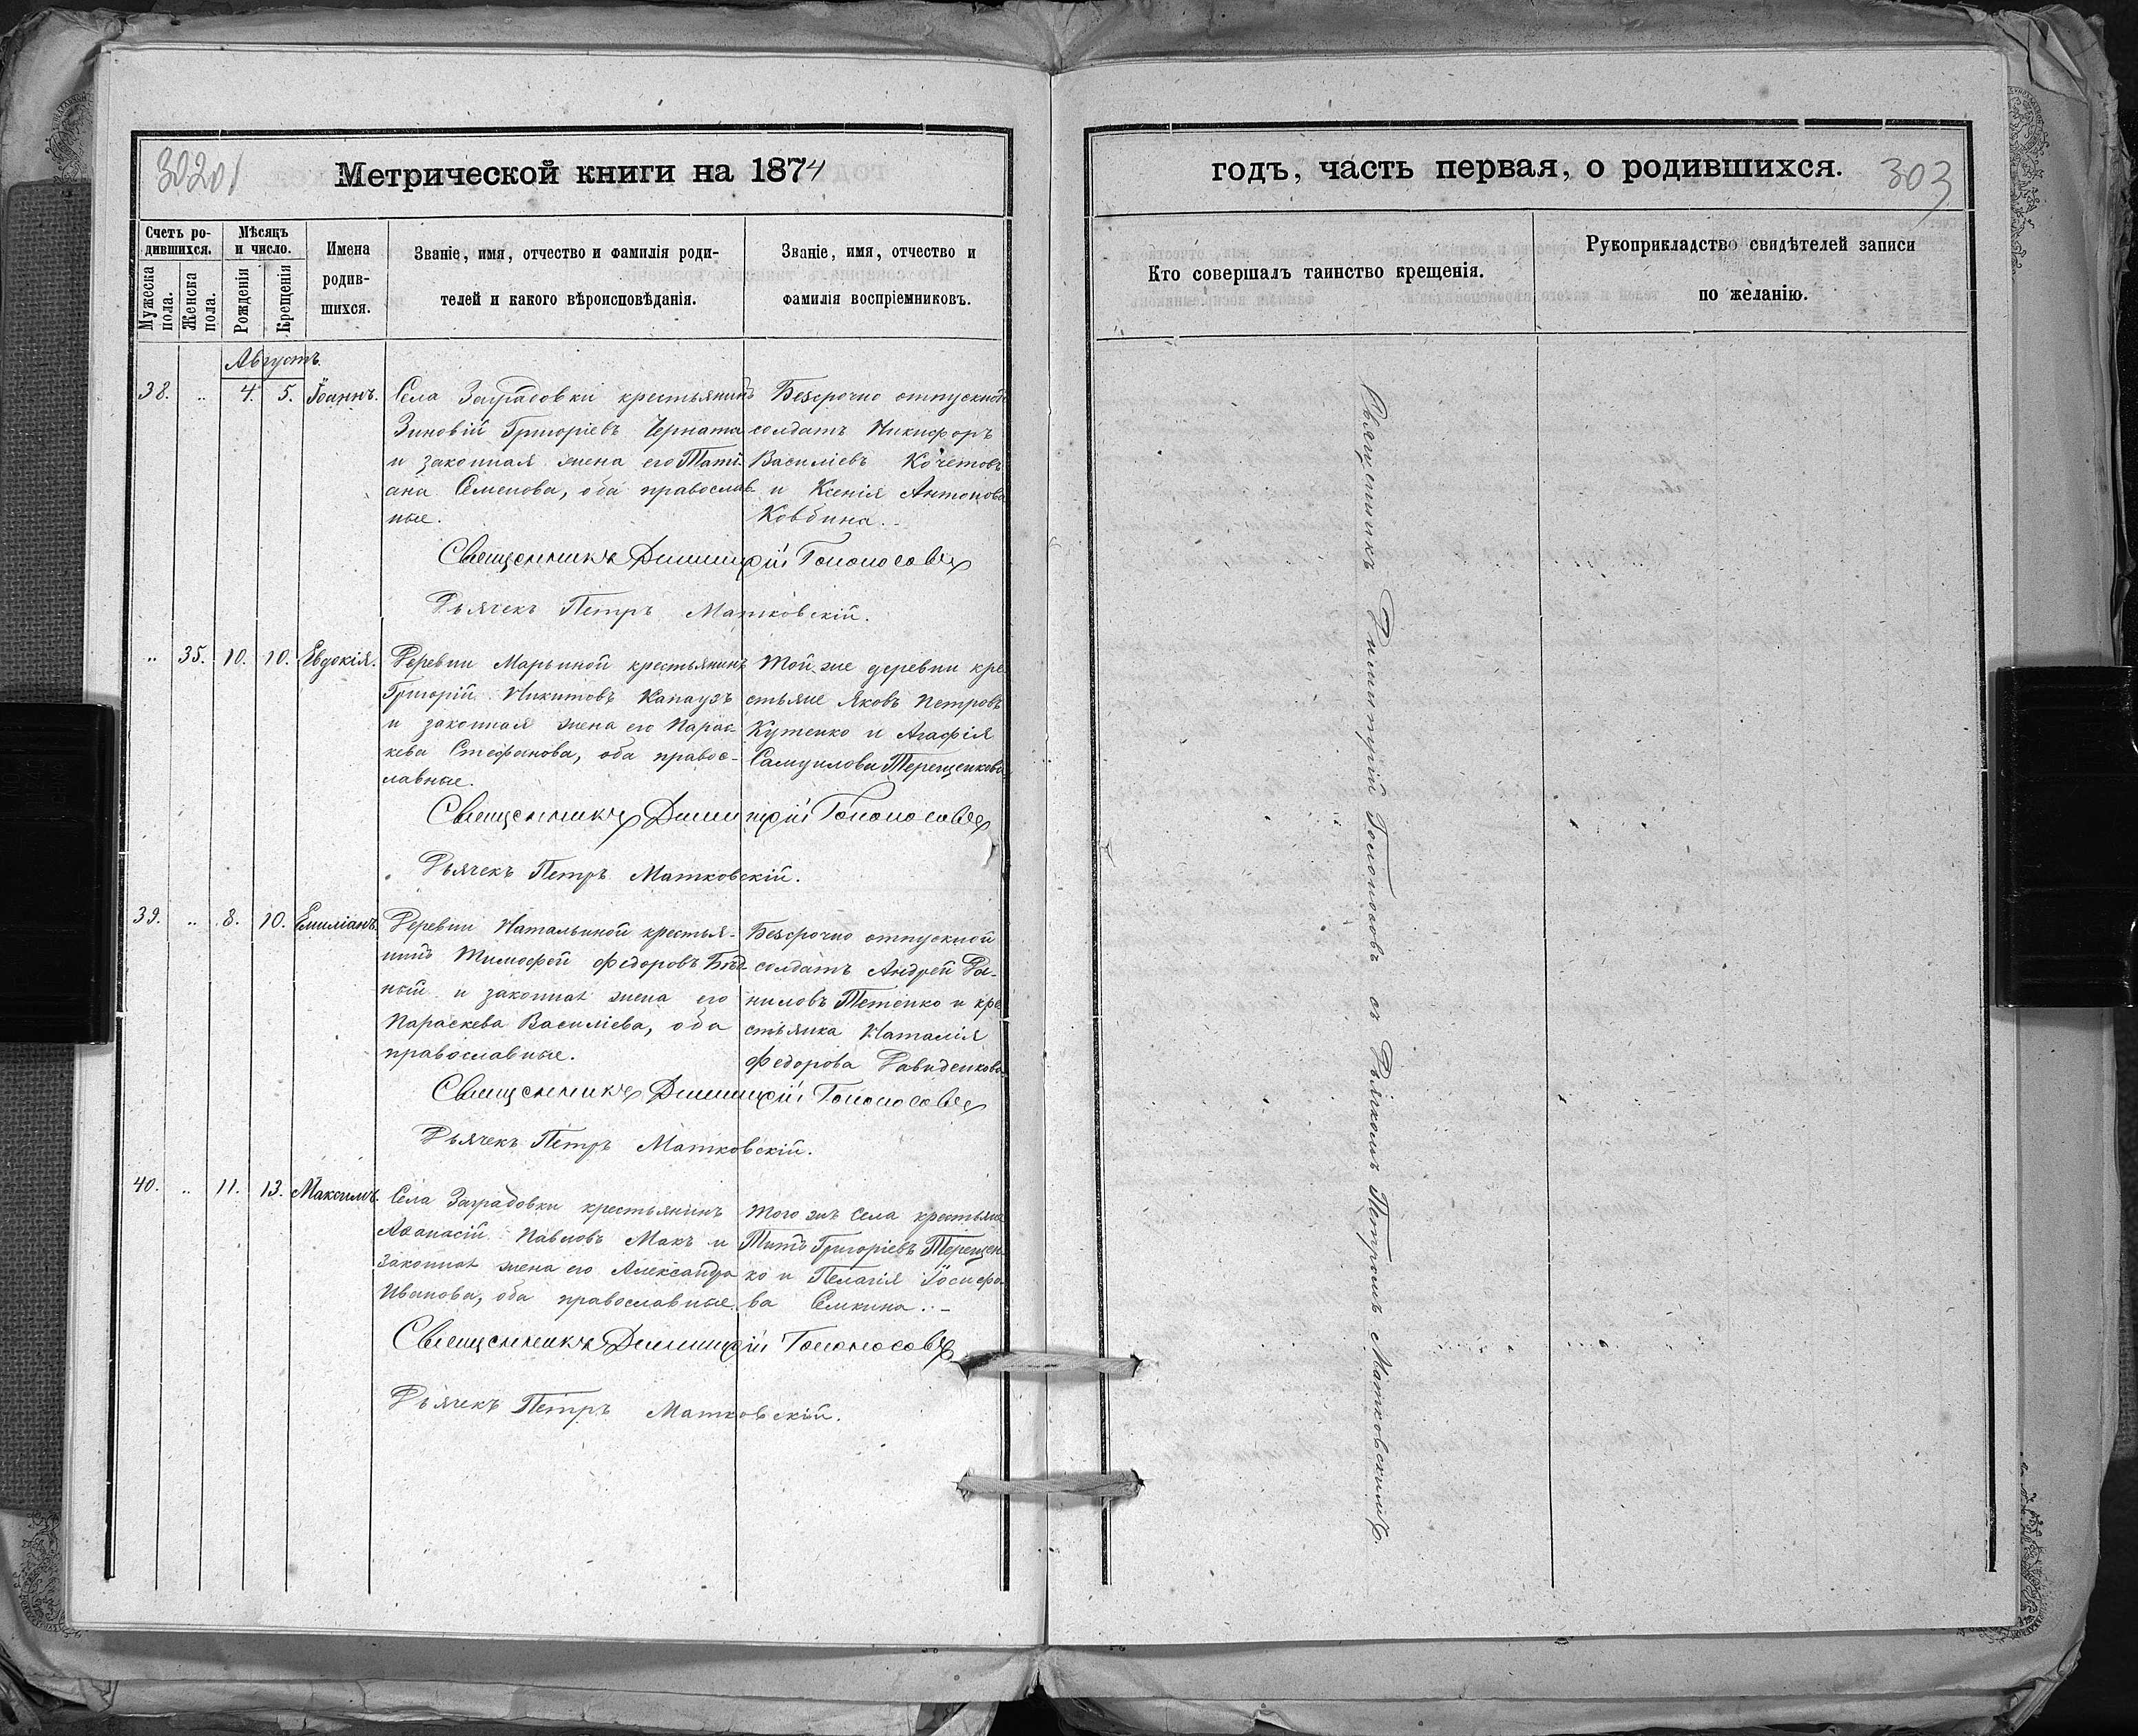 302об
Метрической книги на 1874
Счетъ ро-
дившихся.
Мѣсяцъ
и число.
Мужеска
пола.
Женска
пола.
Рожденія
Крещенія
Имена
родив-
шихся.
Званіе, имя, отчество и фамилія роди-
телей и какого вѣроисповѣданія.
Званіе, имя, отчество и
фамилія воспріемниковъ.
Августъ.
38. .. 4. 5. Іоаннъ.
Села Заградовки крестьянинъ
Зиновій Григоріевъ Черната
и законная жена его Тати-
ана Семенова, оба православ-
ные.
Безсрочно отпускной
солдатъ Никифоръ
Василіевъ Кочетовъ
и Ксенія Антонова
Ковбина.
Священникъ Димитрій Голоносовъ
Дьячекъ Петръ Матковскій.
.. 35. 10. 10. Евдокія.
Деревни Марьиной крестьянинъ
Григорій Никитовъ Капаузъ
и законная жена его Парас-
кева Стефанова, оба правос-
лавные.
Той же деревни кре-
стьяне Яковъ Петровъ
Кутенко и Агафія
Самуилова Терещенкова
Священникъ Димитрій Голоносовъ
Дьячекъ Петръ Матковскій.
39. .. 8. 10. Емиліанъ.
Деревни Натальиной крестья-
нинъ Тимофей Федоровъ Бѣд-
ный и законная жена его
Параскева Василіева, оба
православные.
Безсрочно отпускной
солдатъ Андрей Да-
ниловъ Тетенко и кре-
стьянка Наталія
Федорова Давиденкова
Священникъ Димитрій Голоносовъ
Дьячекъ Петръ Матковскій.
40. .. 11. 13. Максимъ.
Села Заградовки крестьянинъ
Аѳанасій Павловъ Макъ и
законная жена его Александра
Иванова, оба православные.
Того жъ села крестьяне
Титъ Григоріевъ Терещен-
ко и Пелагія Іосифо-
ва Семкина.
Священникъ Димитрій Голоносовъ
Дьячекъ Петръ Матковскій.
годъ, часть первая, о родившихся.
303
Кто совершалъ таинство крещенія.
Рукоприкладство свидѣтелей записи
по желанію.
Священникъ Димитрій Голоносовъ съ Дьячкомъ Петромъ Матковскимъ.